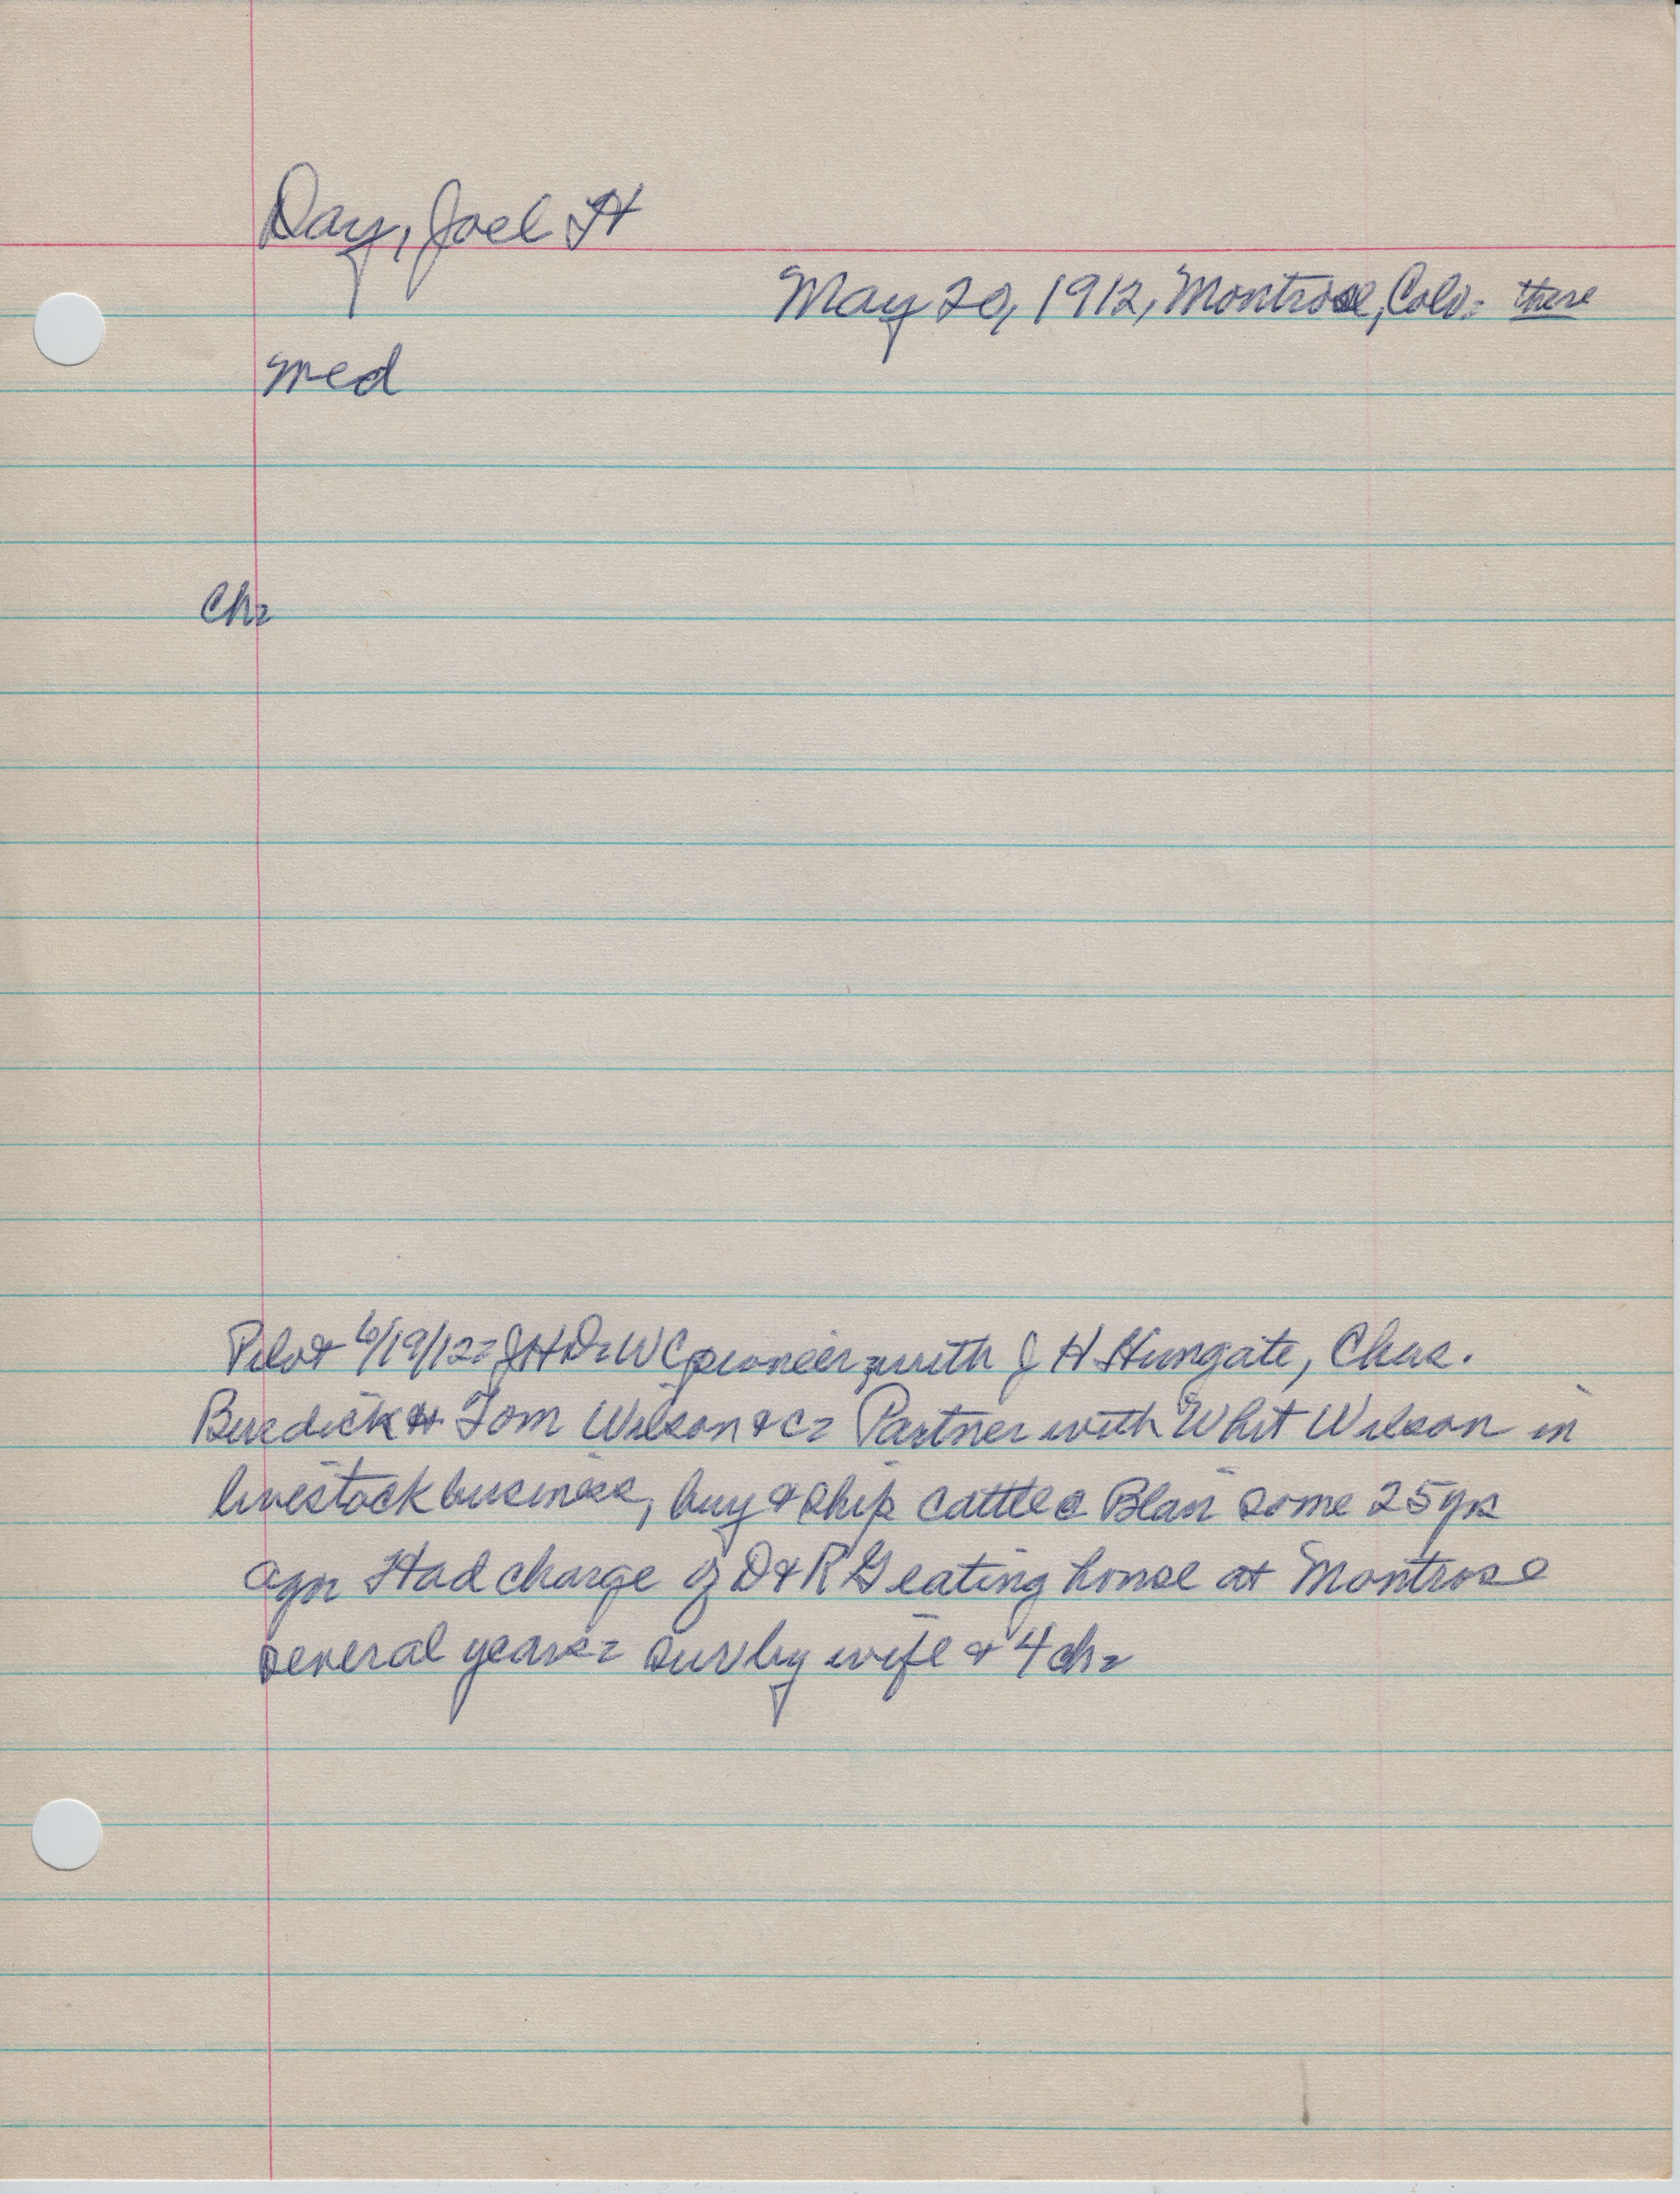 Day, Joel H
May 20, 1912, Montrose, Colo= there
med
Ch=
Pilot 6/19/12= JHD= WC pioneer, with J H Hungate, Chas.
Burdick & Tom Wilson &c= Partner with Whit Wilson in
livestock business, buy & ship cattle c Blair some 25 yrs
ago= Had charge of D & R G eating house at Montrose
several years= surv by wife & 4 ch=